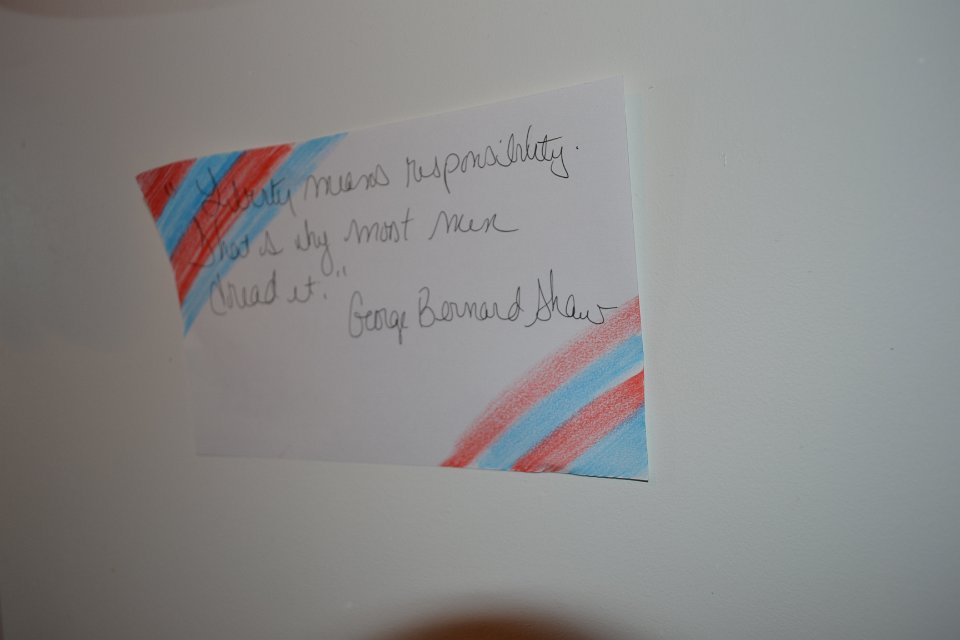 "Liberty means responsibility.
That is why most men
dread it."
George Bernard Shaw